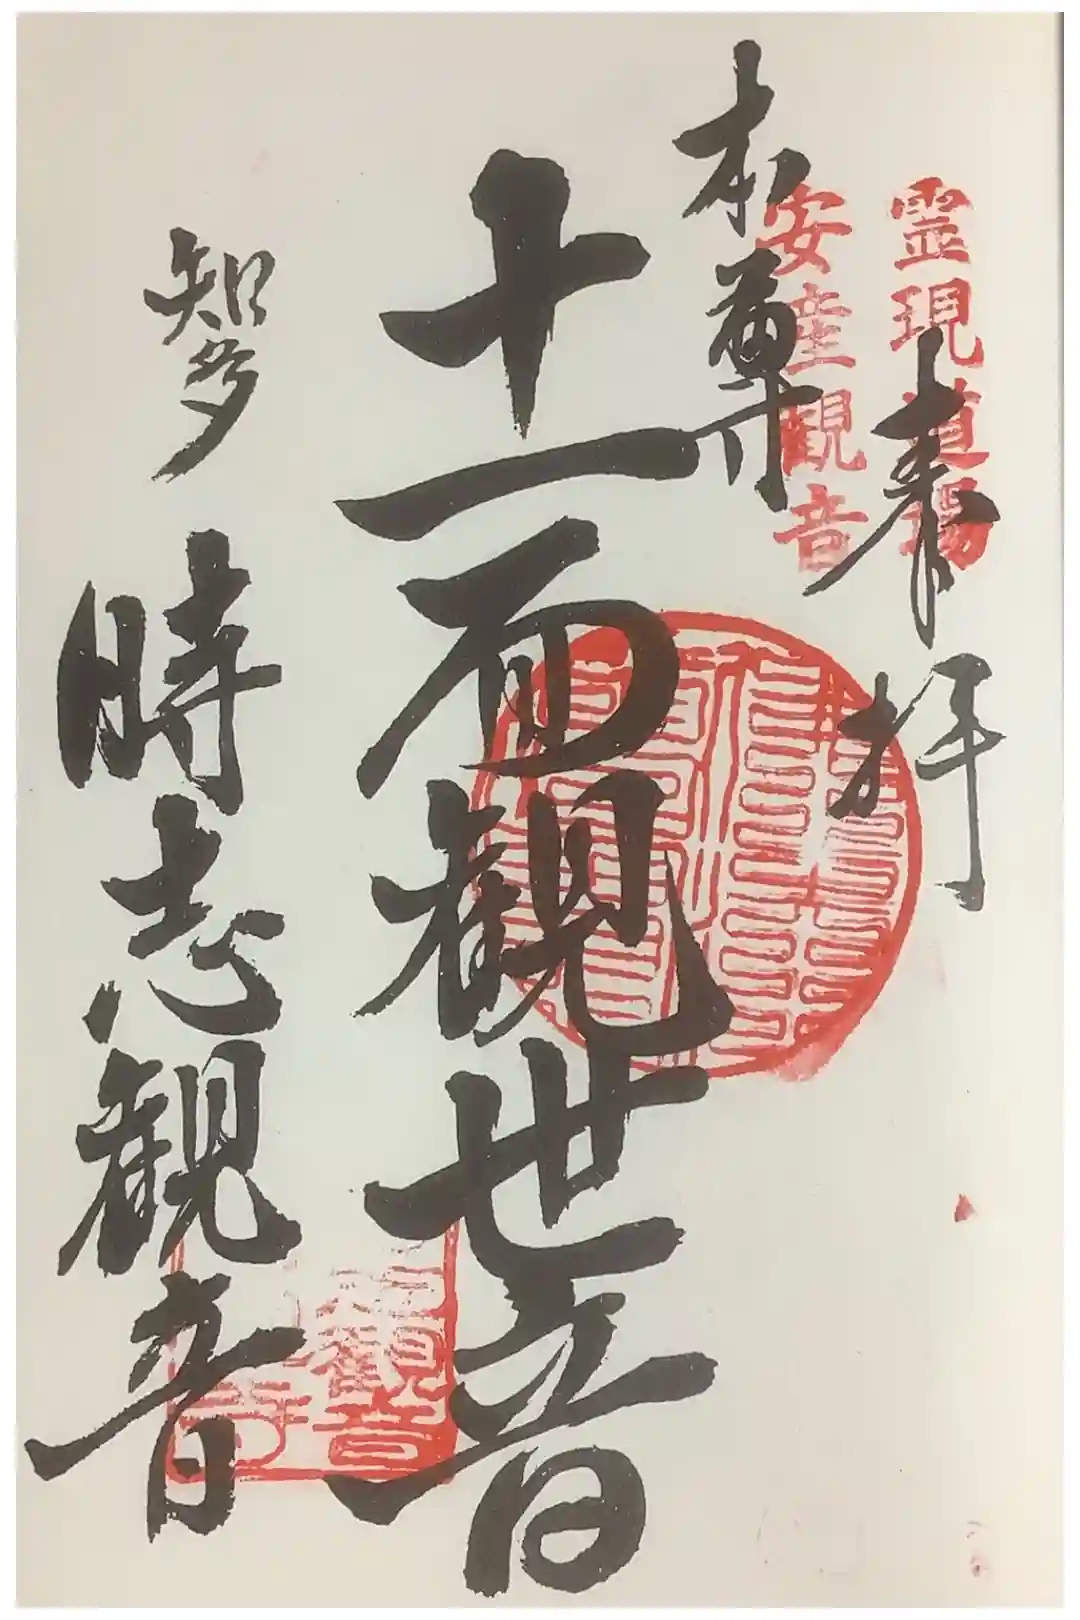 霊現道場
安産観音
奉拝
本尊
十一面観世音
智多
時志観音
観音
寺